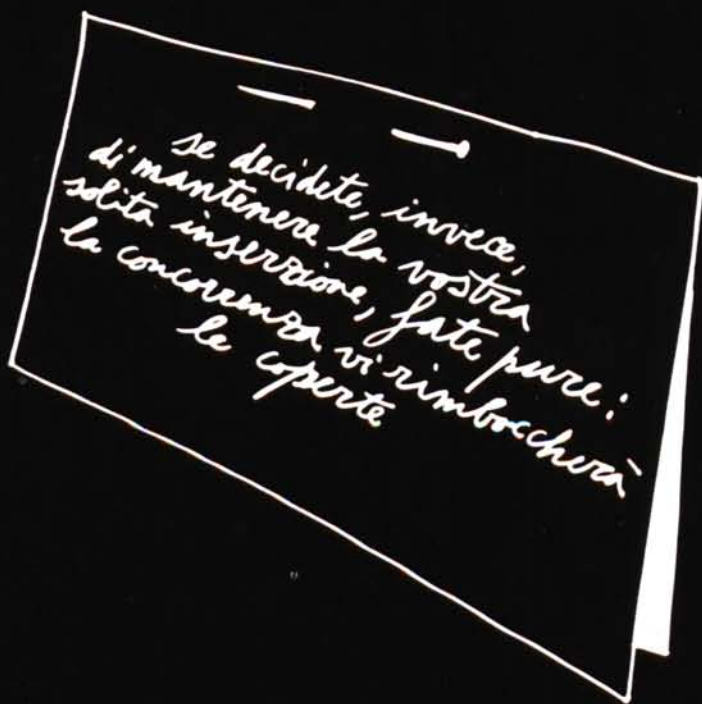 se decidete, invece,
di mantenere la vostra
solita inserzione, fate pure:
la concorrenza vi rimboccherà
le coperte